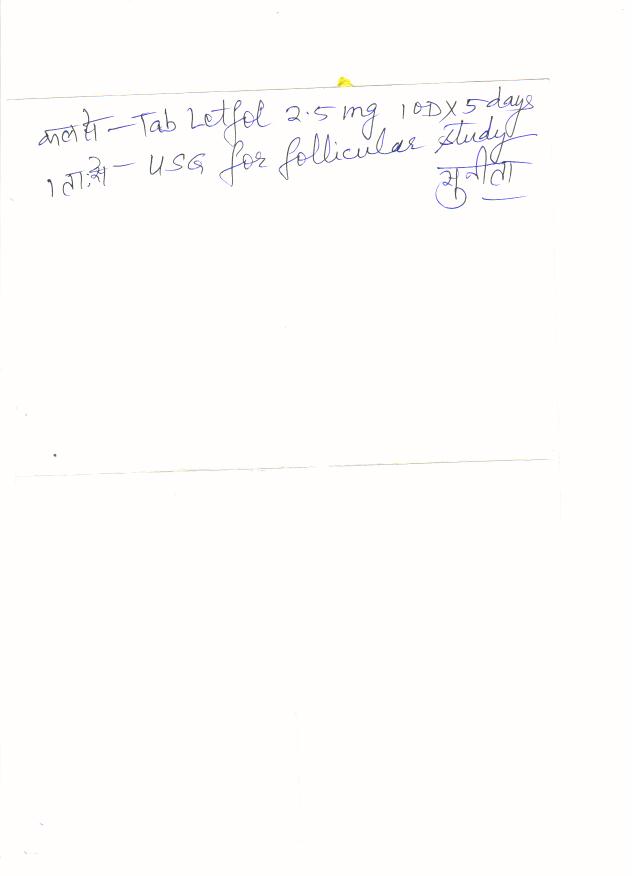 कल से - Tab Letfol 2.5 mg 1 OD X 5 days
1 ता. से - USG for follicular study
सुनीता